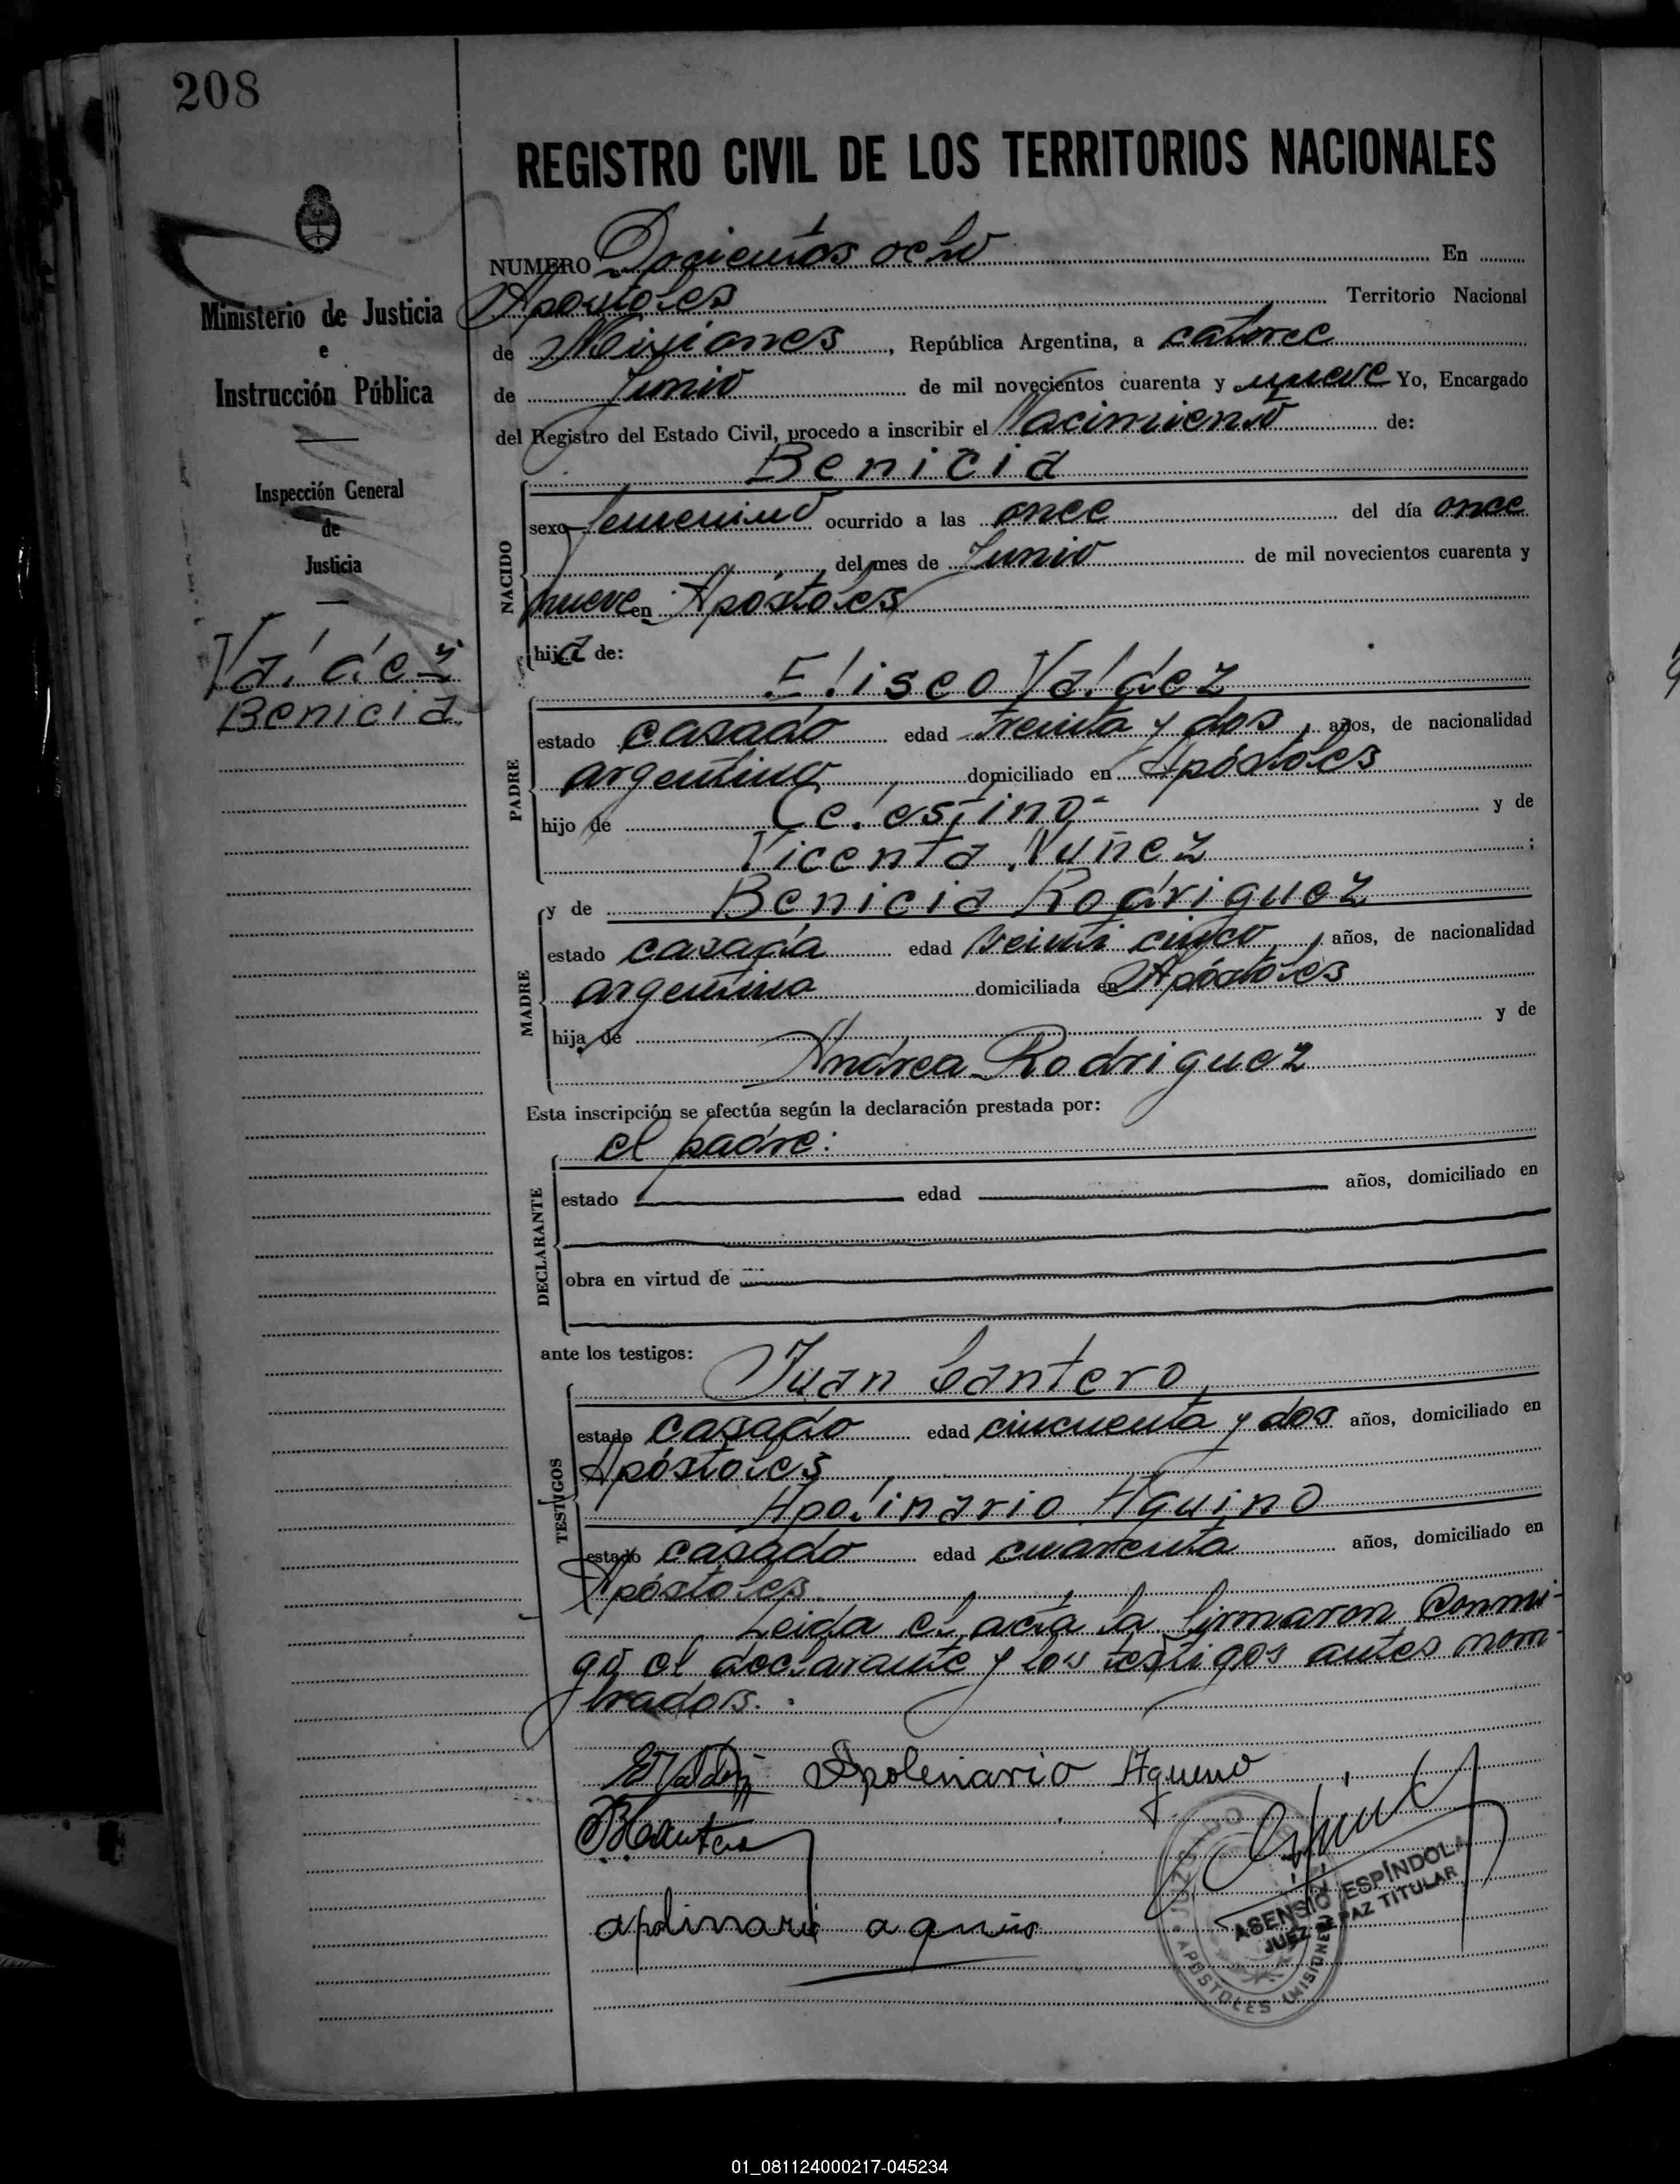 208
REGISTRO CIVIL DE LOS TERRITORIOS NACIONALES
Ministerio de Justicia
e
Instrucción Pública
Inspección General
de
Justicia
Valdez
Benicia
NUMERO Docientos ocho En
Apóstoles Territorio Nacional
de Misiones, República Argentina, a catorce
de Junio de mil novecientos cuarenta y nueve Yo, Encargado
del Registro del Estado Civil, procedo a inscribir el Nacimiento de:
Benicia
NACIDO
sexo femenino ocurrido a las once del día once
del mes de Junio de mil novecientos cuarenta y
nueve en Apóstoles
hija de:
Eliseo Valdez
PADRE
estado casado edad treinta y dos, años, de nacionalidad
argentino domiciliado en Apóstoles
hijo de Celestino y de
Vicenta Nuñez ;
MADRE
y de Benicia Rodriguez
estado casada edad veinti cinco, años, de nacionalidad
argentina domiciliada en Apóstoles
hija de y de
Andrea Rodriguez
Esta inscripción se efectúa según la declaración prestada por:
el padre:
DECLARANTE
estado edad años, domiciliado en
obra en virtud de
ante los testigos:
Juan Cantero
TESTIGOS
estado casado edad cincuenta y dos años, domiciliado en
Apóstoles
Apolinario Aquino
estado casado edad cuarenta años, domiciliado en
Apóstoles
Leida el acta la firmaron conmi-
go el declarante y los testigos antes nom-
brados.
EValdez Apolenario Aquino
apolinario aquino
JUZGADO DE PAZ
APOSTOLES (MISIONES)
ASENSIO ESPÍNDOLA
JUEZ DE PAZ TITULAR
01_081124000217-045234